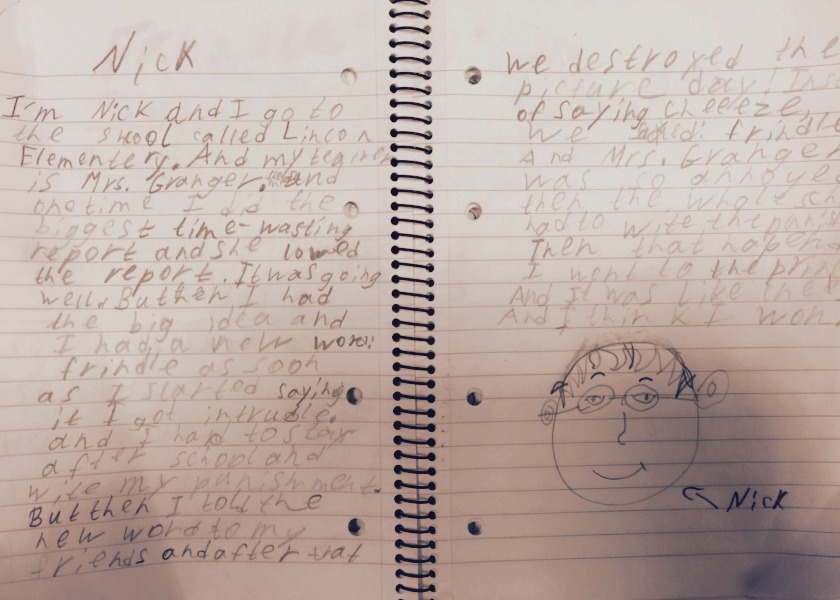 Nick
I'm Nick and I go to
the skool called Lincon
Elementery. And my teacher
is Mrs. Granger. and
one time I did the
biggest time-wasting
report and she loved
the report. It was going
well. But then I had
the big idea and
I had a new word:
frindle as soon
as I started saying
it I got in truble.
and I had to stay
after school and
write my punishment.
But then I told the
new word to my
friends and after that
we destroyed the
picture day! Ins
of saying cheeze,
we frindle
And Mrs. Granger
was so annoyed
then the whole sc
had to write the pun
Then that hapen
I went to the prin
And It was like
And I think I won
Nick